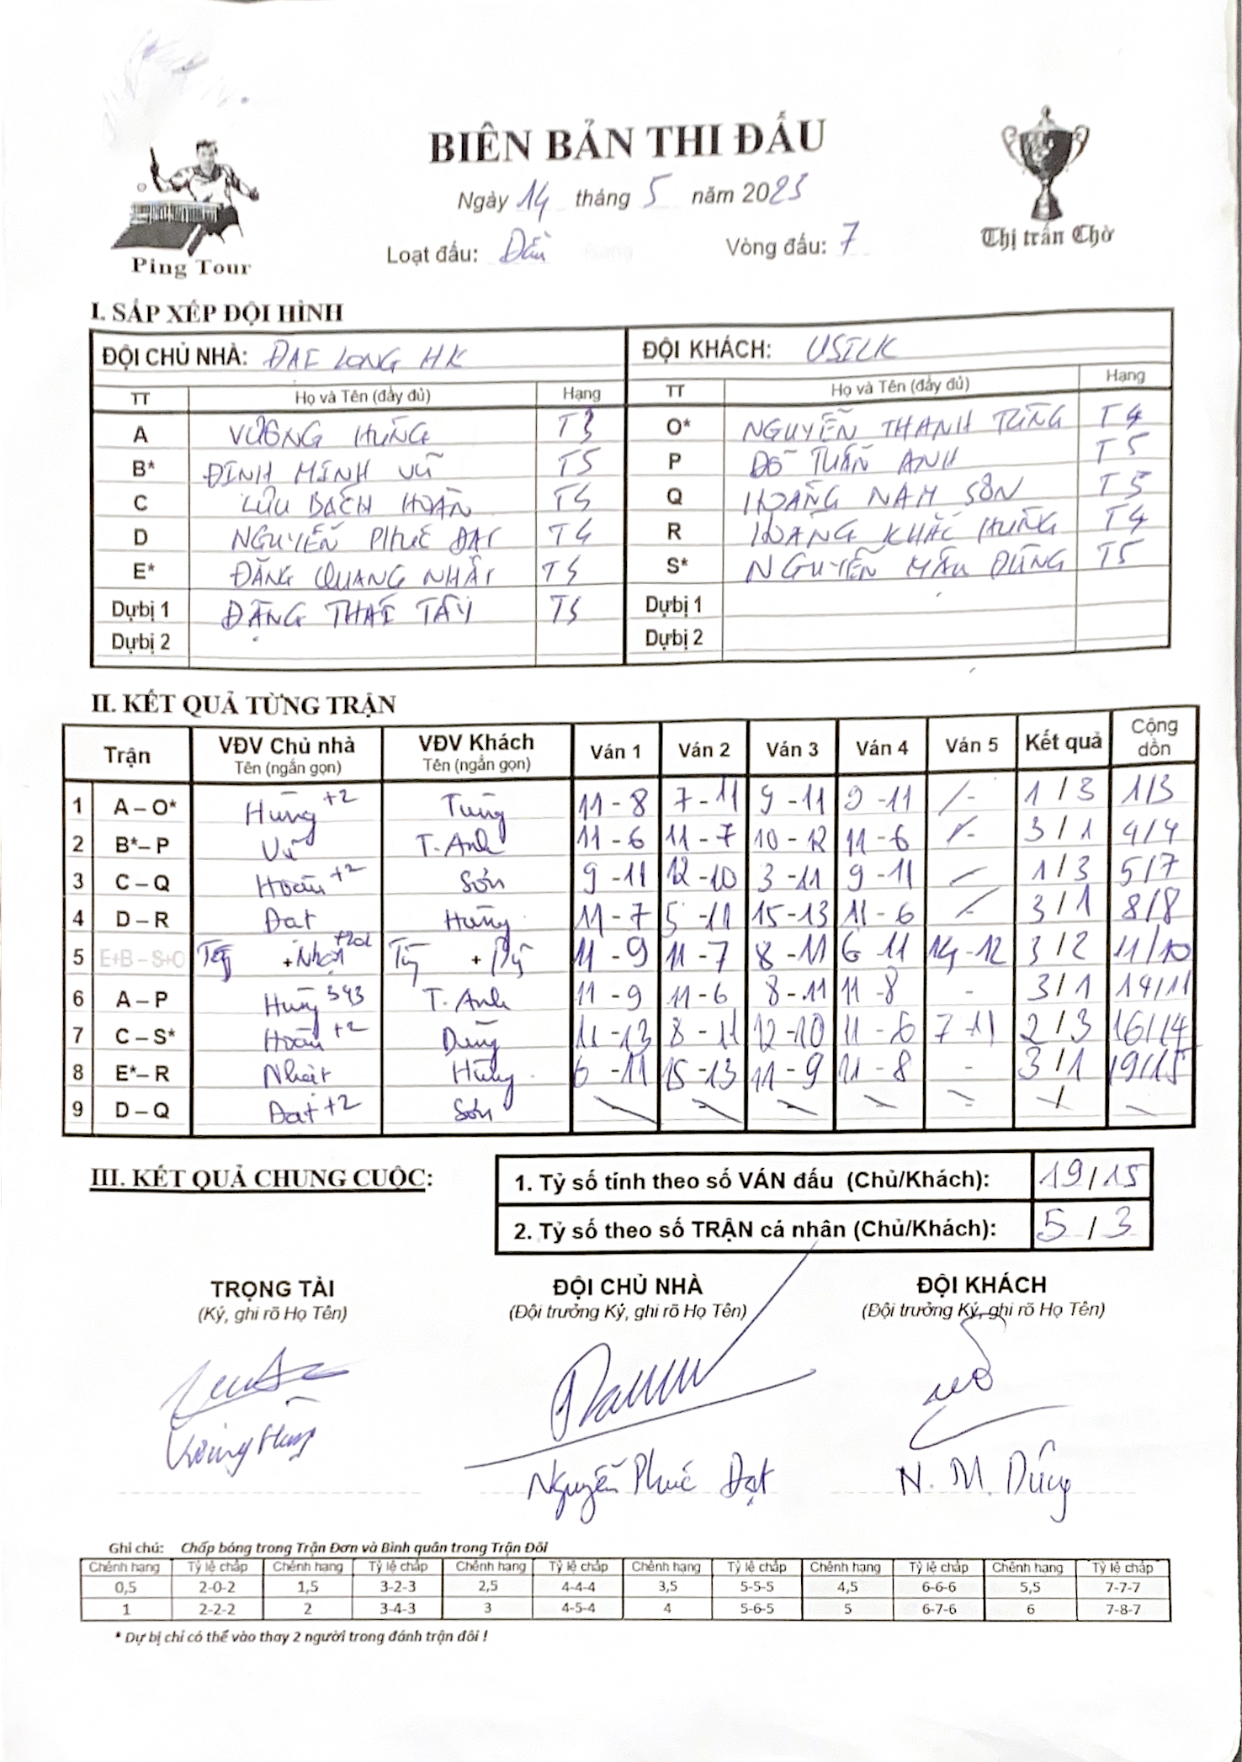 BIÊN BẢN THI ĐẤU
Ngày 14 tháng 5 năm 2023
Loạt đấu: Vòng đấu: 7
Ping Tour
Thị trấn Chờ
I. SẮP XẾP ĐỘI HÌNH
ĐỘI CHỦ NHÀ: ĐAI LONG HK ĐỘI KHÁCH: USILK
TT Họ và Tên (đầy đủ) Hạng TT Họ và Tên (đầy đủ) Hạng
A VƯƠNG HÙNG T3 O* NGUYỄN THANH TÙNG T4
B* ĐINH MINH VŨ T5 P ĐỖ TUẤN ANH T5
C LƯU BÁCH HOÀN T5 Q HOÀNG NAM SƠN T5
D NGUYỄN PHÚC ĐẠT T4 R HOÀNG KHẮC HÙNG T4
E* ĐẶNG QUANG NHẬT T5 S* NGUYỄN MẬU DŨNG T5
Dựbị 1 ĐẶNG THÁI TÂY T5 Dựbị 1
Dựbị 2 Dựbị 2
II. KẾT QUẢ TỪNG TRẬN
Trận VĐV Chủ nhà Tên (ngắn gọn) VĐV Khách Tên (ngắn gọn) Ván 1 Ván 2 Ván 3 Ván 4 Ván 5 Kết quả Cộng dồn
1 A – O* Hùng +2 Tùng 11 - 8 7 - 11 9 - 11 9 - 11 /- 1 / 3 1/3
2 B*– P Vũ T. Anh 11 - 6 11 - 7 10 - 12 11 - 6 /- 3 / 1 4/4
3 C – Q Hoàn +2 Sơn 9 - 11 12 - 10 3 - 11 9 - 11 - 1 / 3 5/7
4 D – R Đạt Hùng 11 - 7 5 - 11 15 - 13 11 - 6 /- 3 / 1 8/8
5 E+B – S+O Tây + Nhật Tg + Dg 11 - 9 11 - 7 8 - 11 6 - 11 14 - 12 3 / 2 11/10
6 A – P Hùng 343 T. Anh 11 - 9 11 - 6 8 - 11 11 - 8 - 3 / 1 14/11
7 C – S* Hoàn +2 Dũng 11 - 13 8 - 11 12 - 10 11 - 6 7 - 11 2 / 3 16/14
8 E*– R Nhật Hùng 6 - 11 15 - 13 11 - 9 11 - 8 - 3 / 1 19/15
9 D – Q Đạt +2 Sơn
III. KẾT QUẢ CHUNG CUỘC:
1. Tỷ số tính theo số VÁN đấu (Chủ/Khách): 19/15
2. Tỷ số theo số TRẬN cá nhân (Chủ/Khách): 5 / 3
TRỌNG TÀI ĐỘI CHỦ NHÀ ĐỘI KHÁCH
(Ký, ghi rõ Họ Tên) (Đội trưởng Ký, ghi rõ Họ Tên) (Đội trưởng Ký, ghi rõ Họ Tên)
Vương Hùng Nguyễn Phúc Đạt N. M. Dũng
Ghi chú: Chấp bóng trong Trận Đơn và Bình quân trong Trận Đôi
Chênh hạng Tỷ lệ chấp Chênh hạng Tỷ lệ chấp Chênh hạng Tỷ lệ chấp Chênh hạng Tỷ lệ chấp Chênh hạng Tỷ lệ chấp Chênh hạng Tỷ lệ chấp
0,5 2-0-2 1,5 3-2-3 2,5 4-4-4 3,5 5-5-5 4,5 6-6-6 5,5 7-7-7
1 2-2-2 2 3-4-3 3 4-5-4 4 5-6-5 5 6-7-6 6 7-8-7
* Dự bị chỉ có thể vào thay 2 người trong đánh trận đôi !